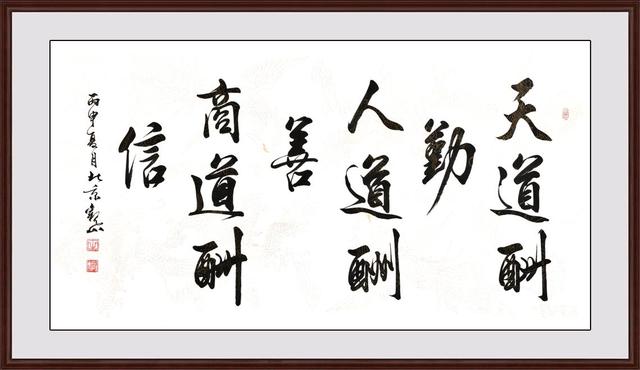 天道酬
勤
人道酬
善
商道酬
信
丙申夏月北京观山